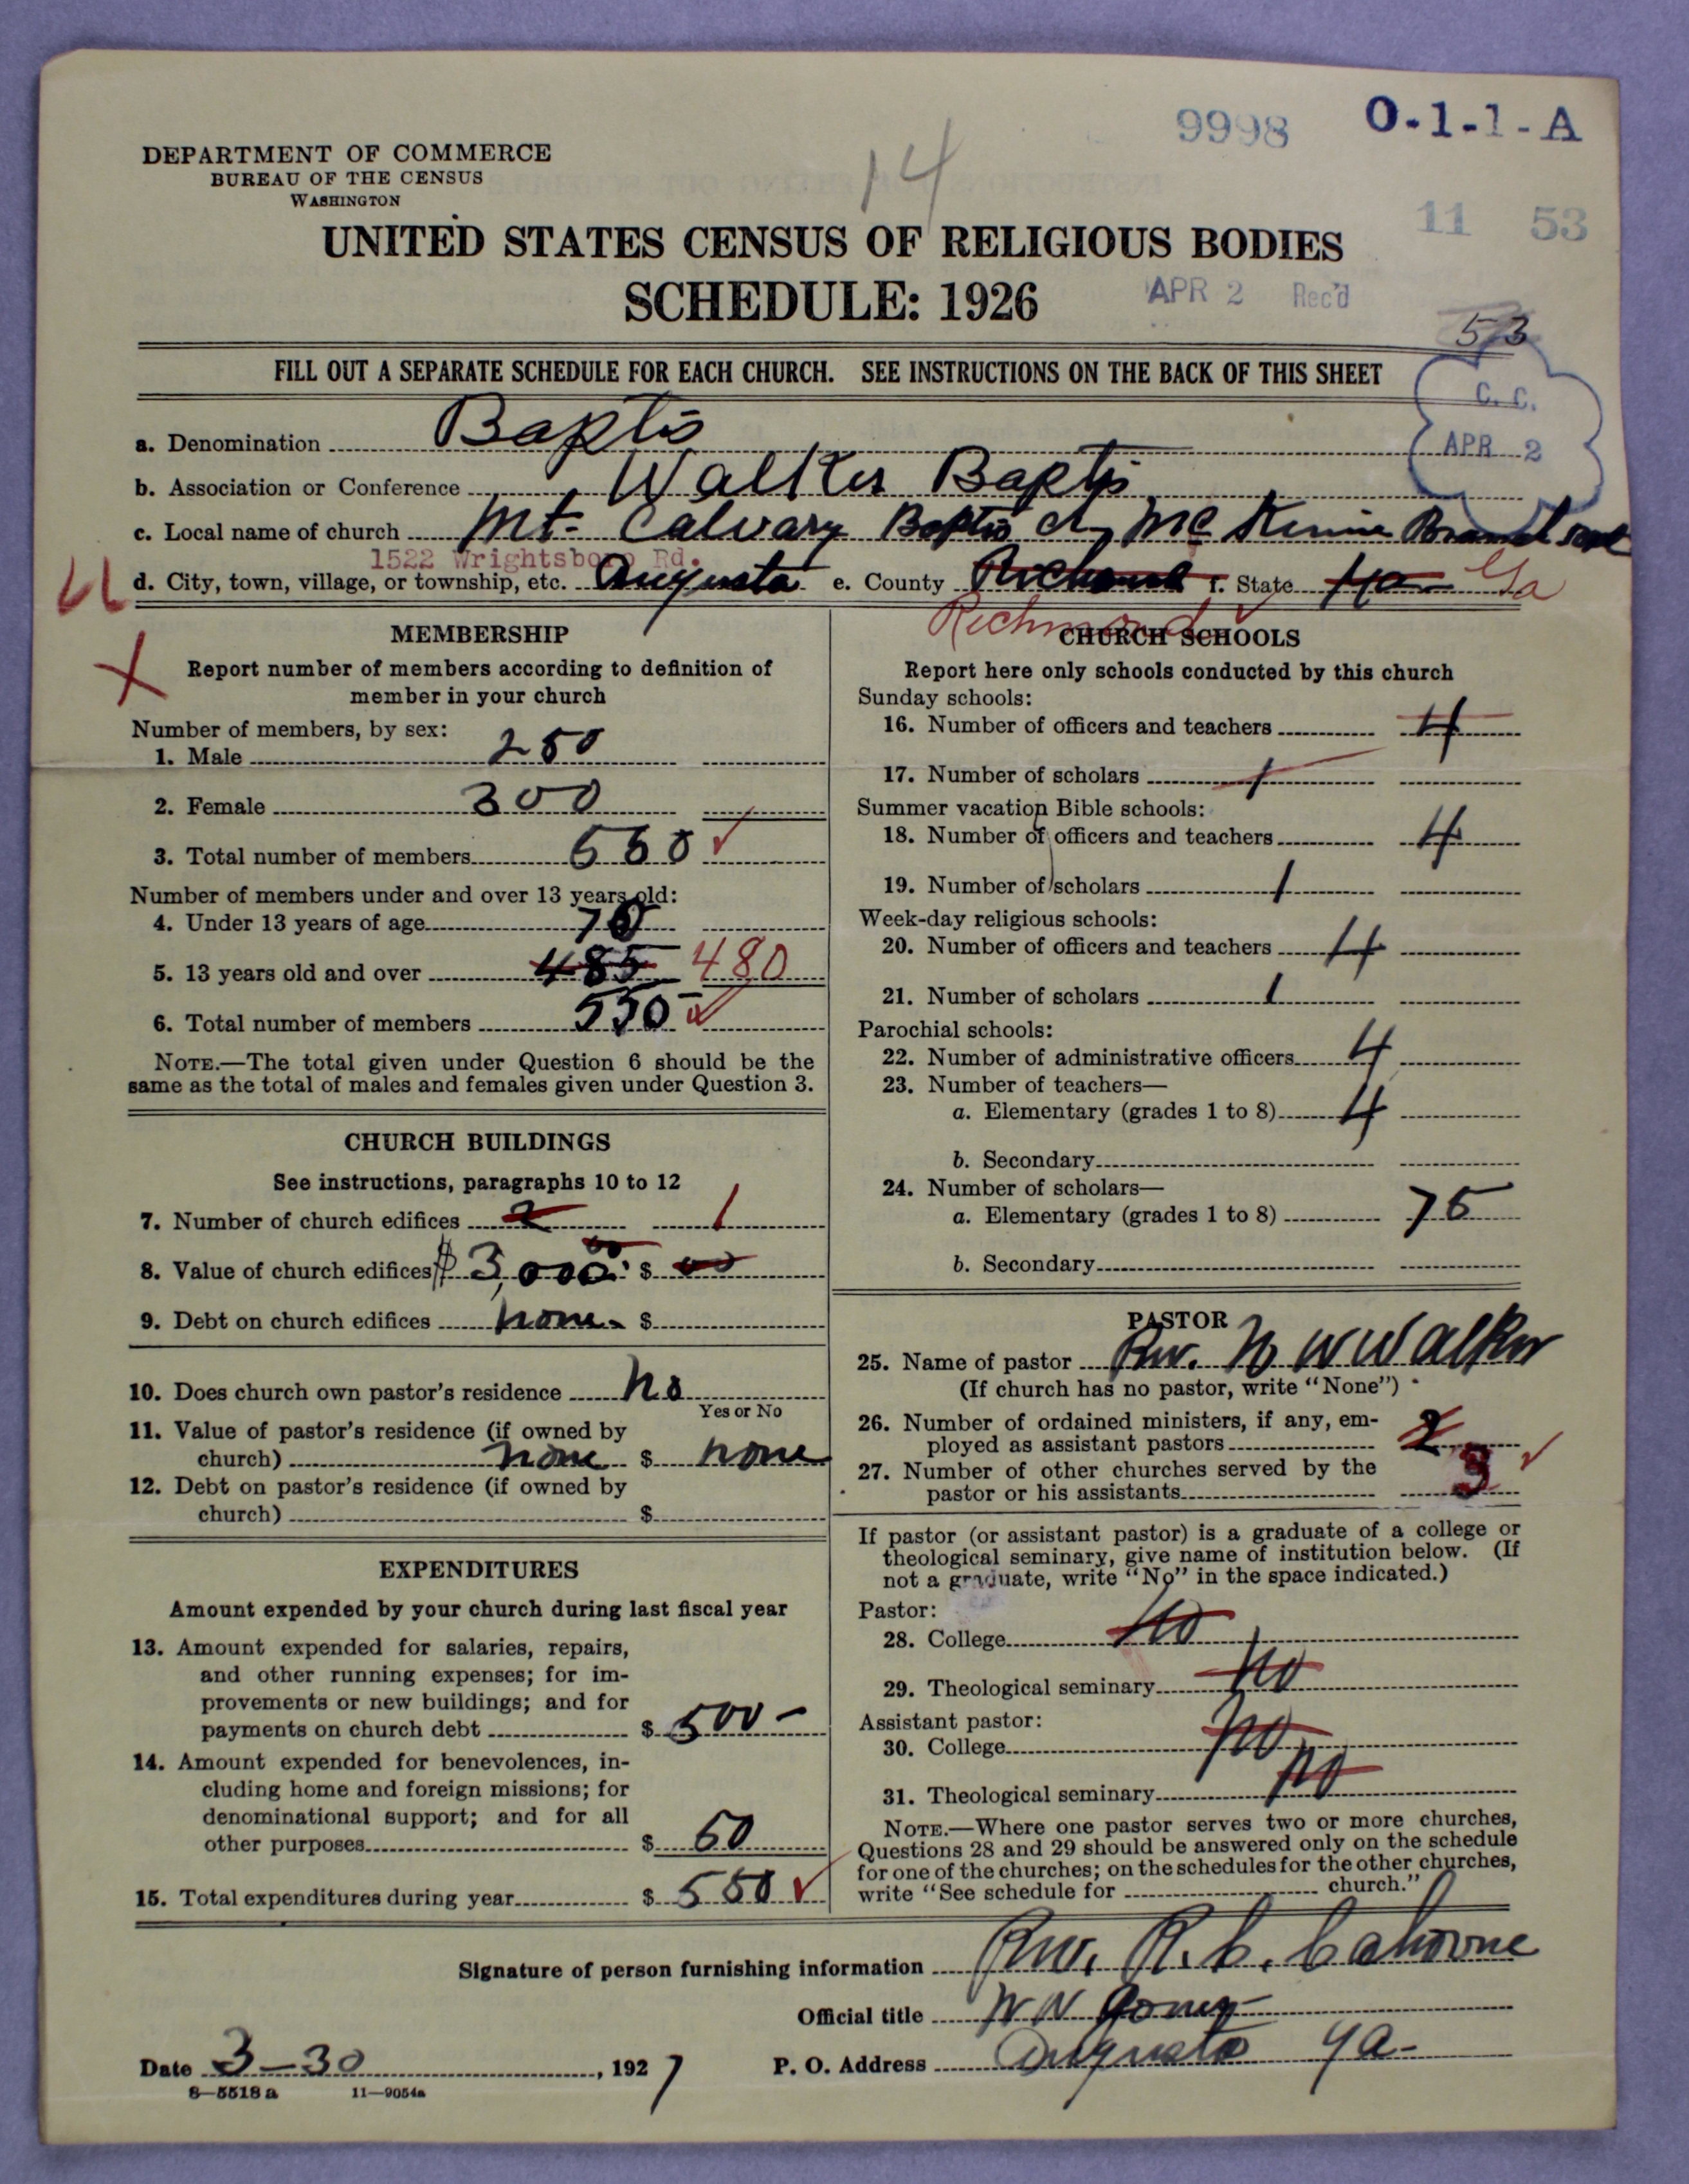 9998 O-1-1-A
DEPARTMENT OF COMMERCE
BUREAU OF THE CENSUS
WASHINGTON
14
11 53
UNITED STATES CENSUS OF RELIGIOUS BODIES
SCHEDULE: 1926
APR 2 Rec'd
53
FILL OUT A SEPARATE SCHEDULE FOR EACH CHURCH. SEE INSTRUCTIONS ON THE BACK OF THIS SHEET
C. C.
APR 2
a. Denomination Baptis
b. Association or Conference Walker Baptis
c. Local name of church Mt. Calvary Baptis Ch
1522 Wrightsboro Rd.
U
d. City, town, village, or township, etc. Augusta e. County Richmond f. State Ga
Richmond
X
MEMBERSHIP
Report number of members according to definition of
member in your church
Number of members, by sex:
1. Male 250
2. Female 300
3. Total number of members 550
Number of members under and over 13 years old:
4. Under 13 years of age 70
5. 13 years old and over 485 480
6. Total number of members 550
NOTE.—The total given under Question 6 should be the
same as the total of males and females given under Question 3.
CHURCH BUILDINGS
See instructions, paragraphs 10 to 12
7. Number of church edifices 2 1
8. Value of church edifices $ 3,000 00 $ 00
9. Debt on church edifices none $
10. Does church own pastor's residence no
Yes or No
11. Value of pastor's residence (if owned by
church) none $ none
12. Debt on pastor's residence (if owned by
church) $
EXPENDITURES
Amount expended by your church during last fiscal year
13. Amount expended for salaries, repairs,
and other running expenses; for im-
provements or new buildings; and for
payments on church debt $ 500 -
14. Amount expended for benevolences, in-
cluding home and foreign missions; for
denominational support; and for all
other purposes $ 50
15. Total expenditures during year $ 550
CHURCH SCHOOLS
Report here only schools conducted by this church
Sunday schools:
16. Number of officers and teachers 4
17. Number of scholars 1
Summer vacation Bible schools:
18. Number of officers and teachers 4
19. Number of scholars 1
Week-day religious schools:
20. Number of officers and teachers 4
21. Number of scholars 1
Parochial schools:
22. Number of administrative officers 4
23. Number of teachers—
a. Elementary (grades 1 to 8) 4
b. Secondary
24. Number of scholars—
a. Elementary (grades 1 to 8) 75
b. Secondary
PASTOR
25. Name of pastor Rev. N W Walker
(If church has no pastor, write "None")
26. Number of ordained ministers, if any, em-
ployed as assistant pastors 2
27. Number of other churches served by the
pastor or his assistants 3
If pastor (or assistant pastor) is a graduate of a college or
theological seminary, give name of institution below. (If
not a graduate, write "No" in the space indicated.)
Pastor:
28. College no
29. Theological seminary no
Assistant pastor:
30. College no
31. Theological seminary no
NOTE.—Where one pastor serves two or more churches,
Questions 28 and 29 should be answered only on the schedule
for one of the churches; on the schedules for the other churches,
write "See schedule for church."
Signature of person furnishing information Rev. R. C.
Official title
Date 3-30, 1927 P. O. Address Augusta Ga-
8-5518 a 11-9054a